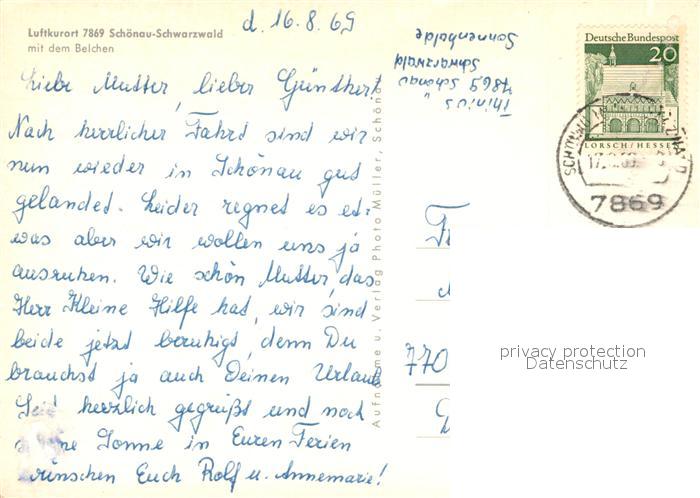 d. 16.8.69
Luftkurort 7869 Schönau-Schwarzwald
mit dem Belchen
Liebe Mutter, lieber Günther!
Nach herrlicher Fahrt sind wir
nun wieder in Schönau gut
gelandet. Leider regnet es et-
was aber wir wollen uns ja
ausruhen. Wie schön Mutter, das
Herr Kleine Hilfe hat, wir sind
beide jetzt beruhigt, denn Du
brauchst ja auch Deinen Urlaub
Seid herzlich gegrüßt und noch
Sonne in Euren Ferien
wünschen Euch Rolf u. Annemarie!
Aufnahme u. Verlag Photo Müller, Schöna
Thinius
7869 Schönau
Schwarzwald
Sonnenhalde
Deutsche Bundespost
20
LORSCH/HESSEN
SCHÖNAU
7869
770
privacy protection
Datenschutz